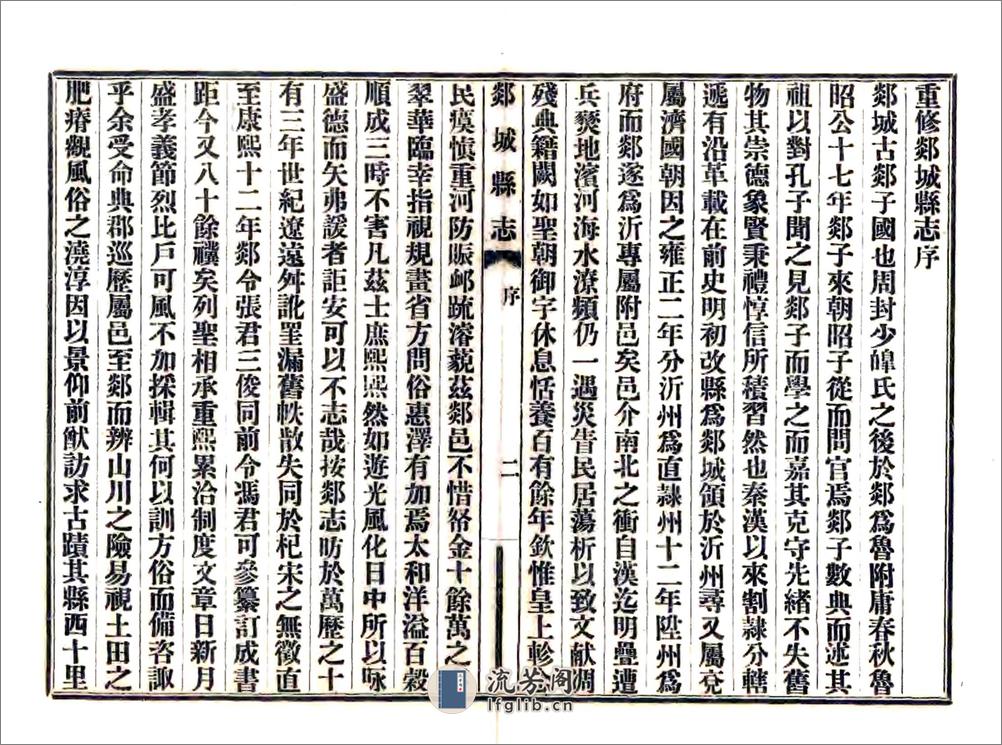 重修郯城縣志序
郯城古郯子國也周封少皥氏之後於郯爲魯附庸春秋魯
昭公十七年郯子來朝昭子從而問官焉郯子數典而述其
祖以對孔子聞之見郯子而學之而嘉其克守先緒不失舊
物其崇德象賢秉禮惇信所積習然也秦漢以來割隸分轄
遞有沿革載在前史明初改縣爲郯城領於沂州尋又屬兗
屬濟國朝因之雍正二年分沂州爲直隸州十二年陞州爲
府而郯遂爲沂專屬附邑矣邑介南北之衝自漢迄明疊遭
兵燹地濱河海水潦頻仍一遇災眚民居蕩析以致文献凋
殘典籍闕如聖朝御宇休息恬養百有餘年欽惟皇上軫
郯城縣志 序 二
民瘼慎重河防賑邺疏濬藐茲郯邑不惜帑金十餘萬之
翠華臨幸指視規畫省方問俗惠澤有加焉太和洋溢百穀
順成三時不害凡茲士庶熙熙然如遊光風化日中所以咏
盛德而矢弗諼者詎安可以不志哉按郯志昉於萬歷之十
有三年世紀遼遠舛訛罣漏舊帙散失同於杞宋之無徵直
至康熙十二年郯令張君三俊同前令馮君可參纂訂成書
距今又八十餘禩矣列聖相承重熙累洽制度文章日新月
盛孝義節烈比戶可風不加採輯其何以訓方俗而備咨諏
乎余受命典郡巡歷屬邑至郯而辨山川之險易視土田之
肥瘠觀風俗之澆淳因以景仰前猷訪求古蹟其縣西十里
流芳阁
lfglib.cn